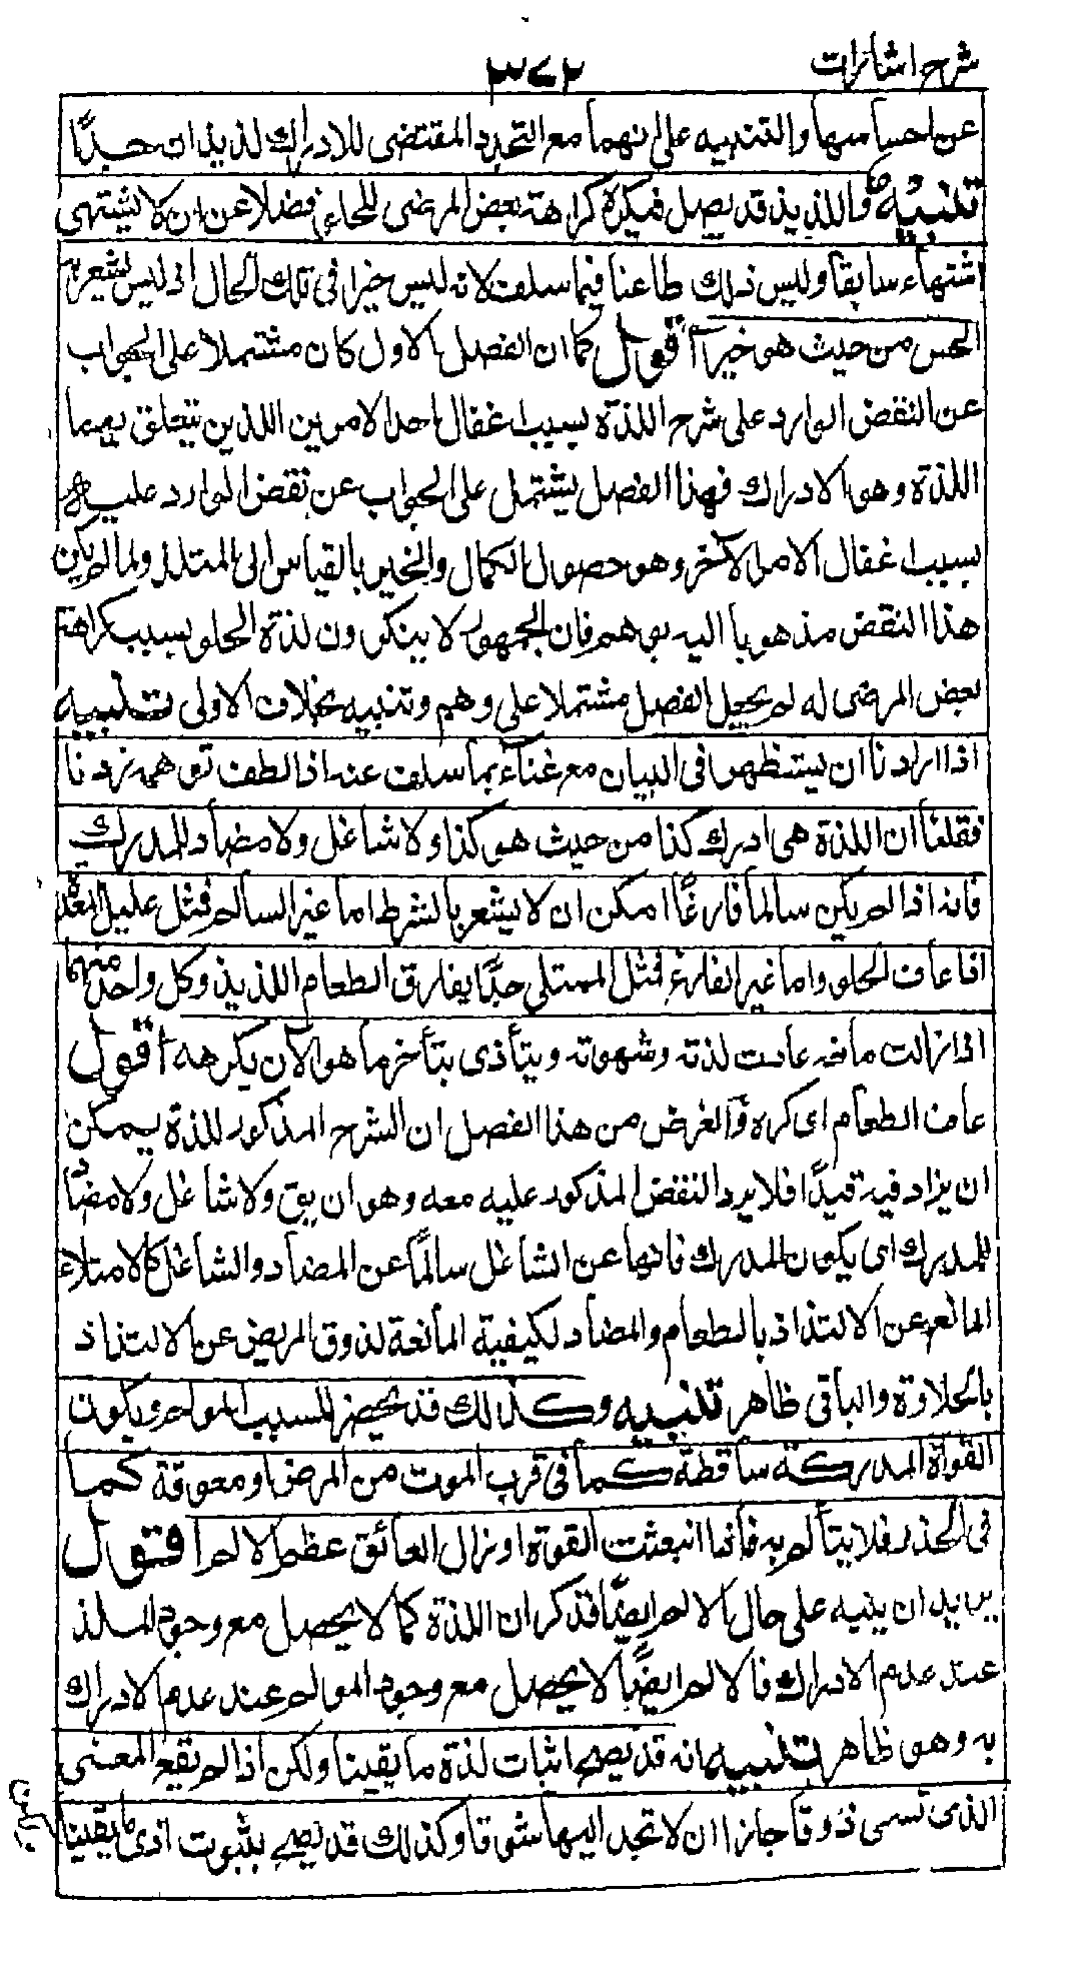 شرح اشارات
٣٧٢
عن احساسها والتنبيه على انهما مع التجرد المقتضى للادراك لذيذان جدًّا
تنبيه واللذيذ قد يصل فيكره كراهة بعض المرضى للحلو فضلا عن ان لا يشتهى
اشتهاء سابقا وليس ذلك طاعنا فيما سلف لانه ليس خيرا فى تلك الحال اذ ليس يشعر به
الحس من حيث هو خير أقول كما ان الفصل الاول كان مشتملا على الجواب
عن النقض الوارد على شرح اللذة بسبب اغفال احد الامرين اللذين يتعلق بهما
اللذة وهو الادراك فهذا الفصل يشتمل على الجواب عن نقض الوارد عليه
بسبب اغفال الامر الآخر وهو حصول الكمال والخير بالقياس الى الملتذ ولما لم يكن
هذا النقض مذهوبا اليه بوهم فان الجمهور لا ينكرون لذة الحلو بسبب كراهة
بعض المرضى له لم يجعل الفصل مشتملا على وهم وتنبيه بخلاف الاولى تنبيه
اذا اردنا ان يستظهر فى البيان مع غناء بما سلف عنه اذا لطف توهمه زدنا
فقلنا ان اللذة هى ادراك كذا من حيث هو كذا ولا شاغل ولا مضاد للمدرك
فانه اذا لم يكن سالما فارغًا امكن ان لا يشعر بالشرط اما غير السالم فمثل عليل المعدة
اذا عاف الحلو واما غير الفارغ فمثل الممتلى جدًّا يفارق الطعام اللذيذ وكل واحد منهما
اذا زالت مانعه عادت لذته وشهوته ويتأذى بتأخر ما هو الآن يكرهه أقول
عاف الطعام اى كره والغرض من هذا الفصل ان الشرح المذكور للذة يمكن
ان يزاد فيه قيدًا فلا يرد النقض المذكور عليه معه وهو ان يق ولا شاغل ولا مضاد
للمدرك اى يكون المدرك فارغا عن الشاغل سالمًا عن المضاد والشاغل كالامتلاء
المانع عن الالتذاذ بالطعام والمضاد لكيفية المانعة لذوق المريض عن الالتذاذ
بالحلاوة والباقى ظاهر تنبيه وكذلك قد يحضر السبب المولم ويكون
القوة المدركة ساقطة كما فى قرب الموت من المرض او معوقة كما
فى الخدر فلا يتألم به فاذا انبعثت القوة او زال العائق عظم الالم أقول
يريد ان ينبه على حال الالم ايضًا فذكر ان اللذة كما لا يحصل مع وجود الملذ
عند عدم الادراك فالالم ايضًا لا يحصل مع وجود المولم عند عدم الادراك
به وهو ظاهر تنبيه انه قد يصح اثبات لذة ما يقينا ولكن اذا لم يقع المعنى
الذى تسمى ذوقا جاز ان لا تجد اليها شوقا وكذلك قد يصح بثبوت اذى ما يقينا